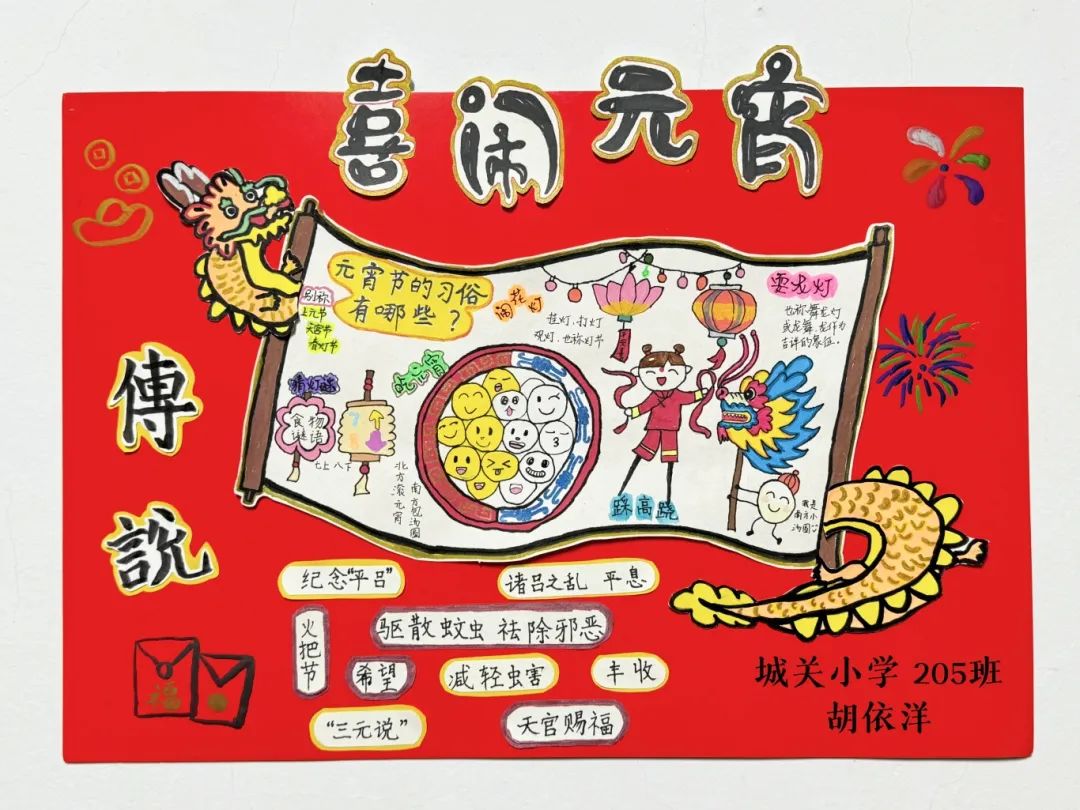 喜闹元宵
元宵节的习俗
有哪些？
别称
上元节
天官节
春灯节
闹花灯
挂灯、打灯
观灯、也称灯节
耍龙灯
也称舞龙灯
或龙舞、龙作为
吉祥的象征。
猜灯谜
食物
谜语
七上八下
吃元宵
北方滚元宵
南方包汤圆
踩高跷
我是
南方小
汤圆
傳說
纪念“平吕”
诸吕之乱 平息
火把节
驱散蚊虫 祛除邪恶
希望
减轻虫害
丰收
“三元说”
天官赐福
福
城关小学 205班
胡依洋